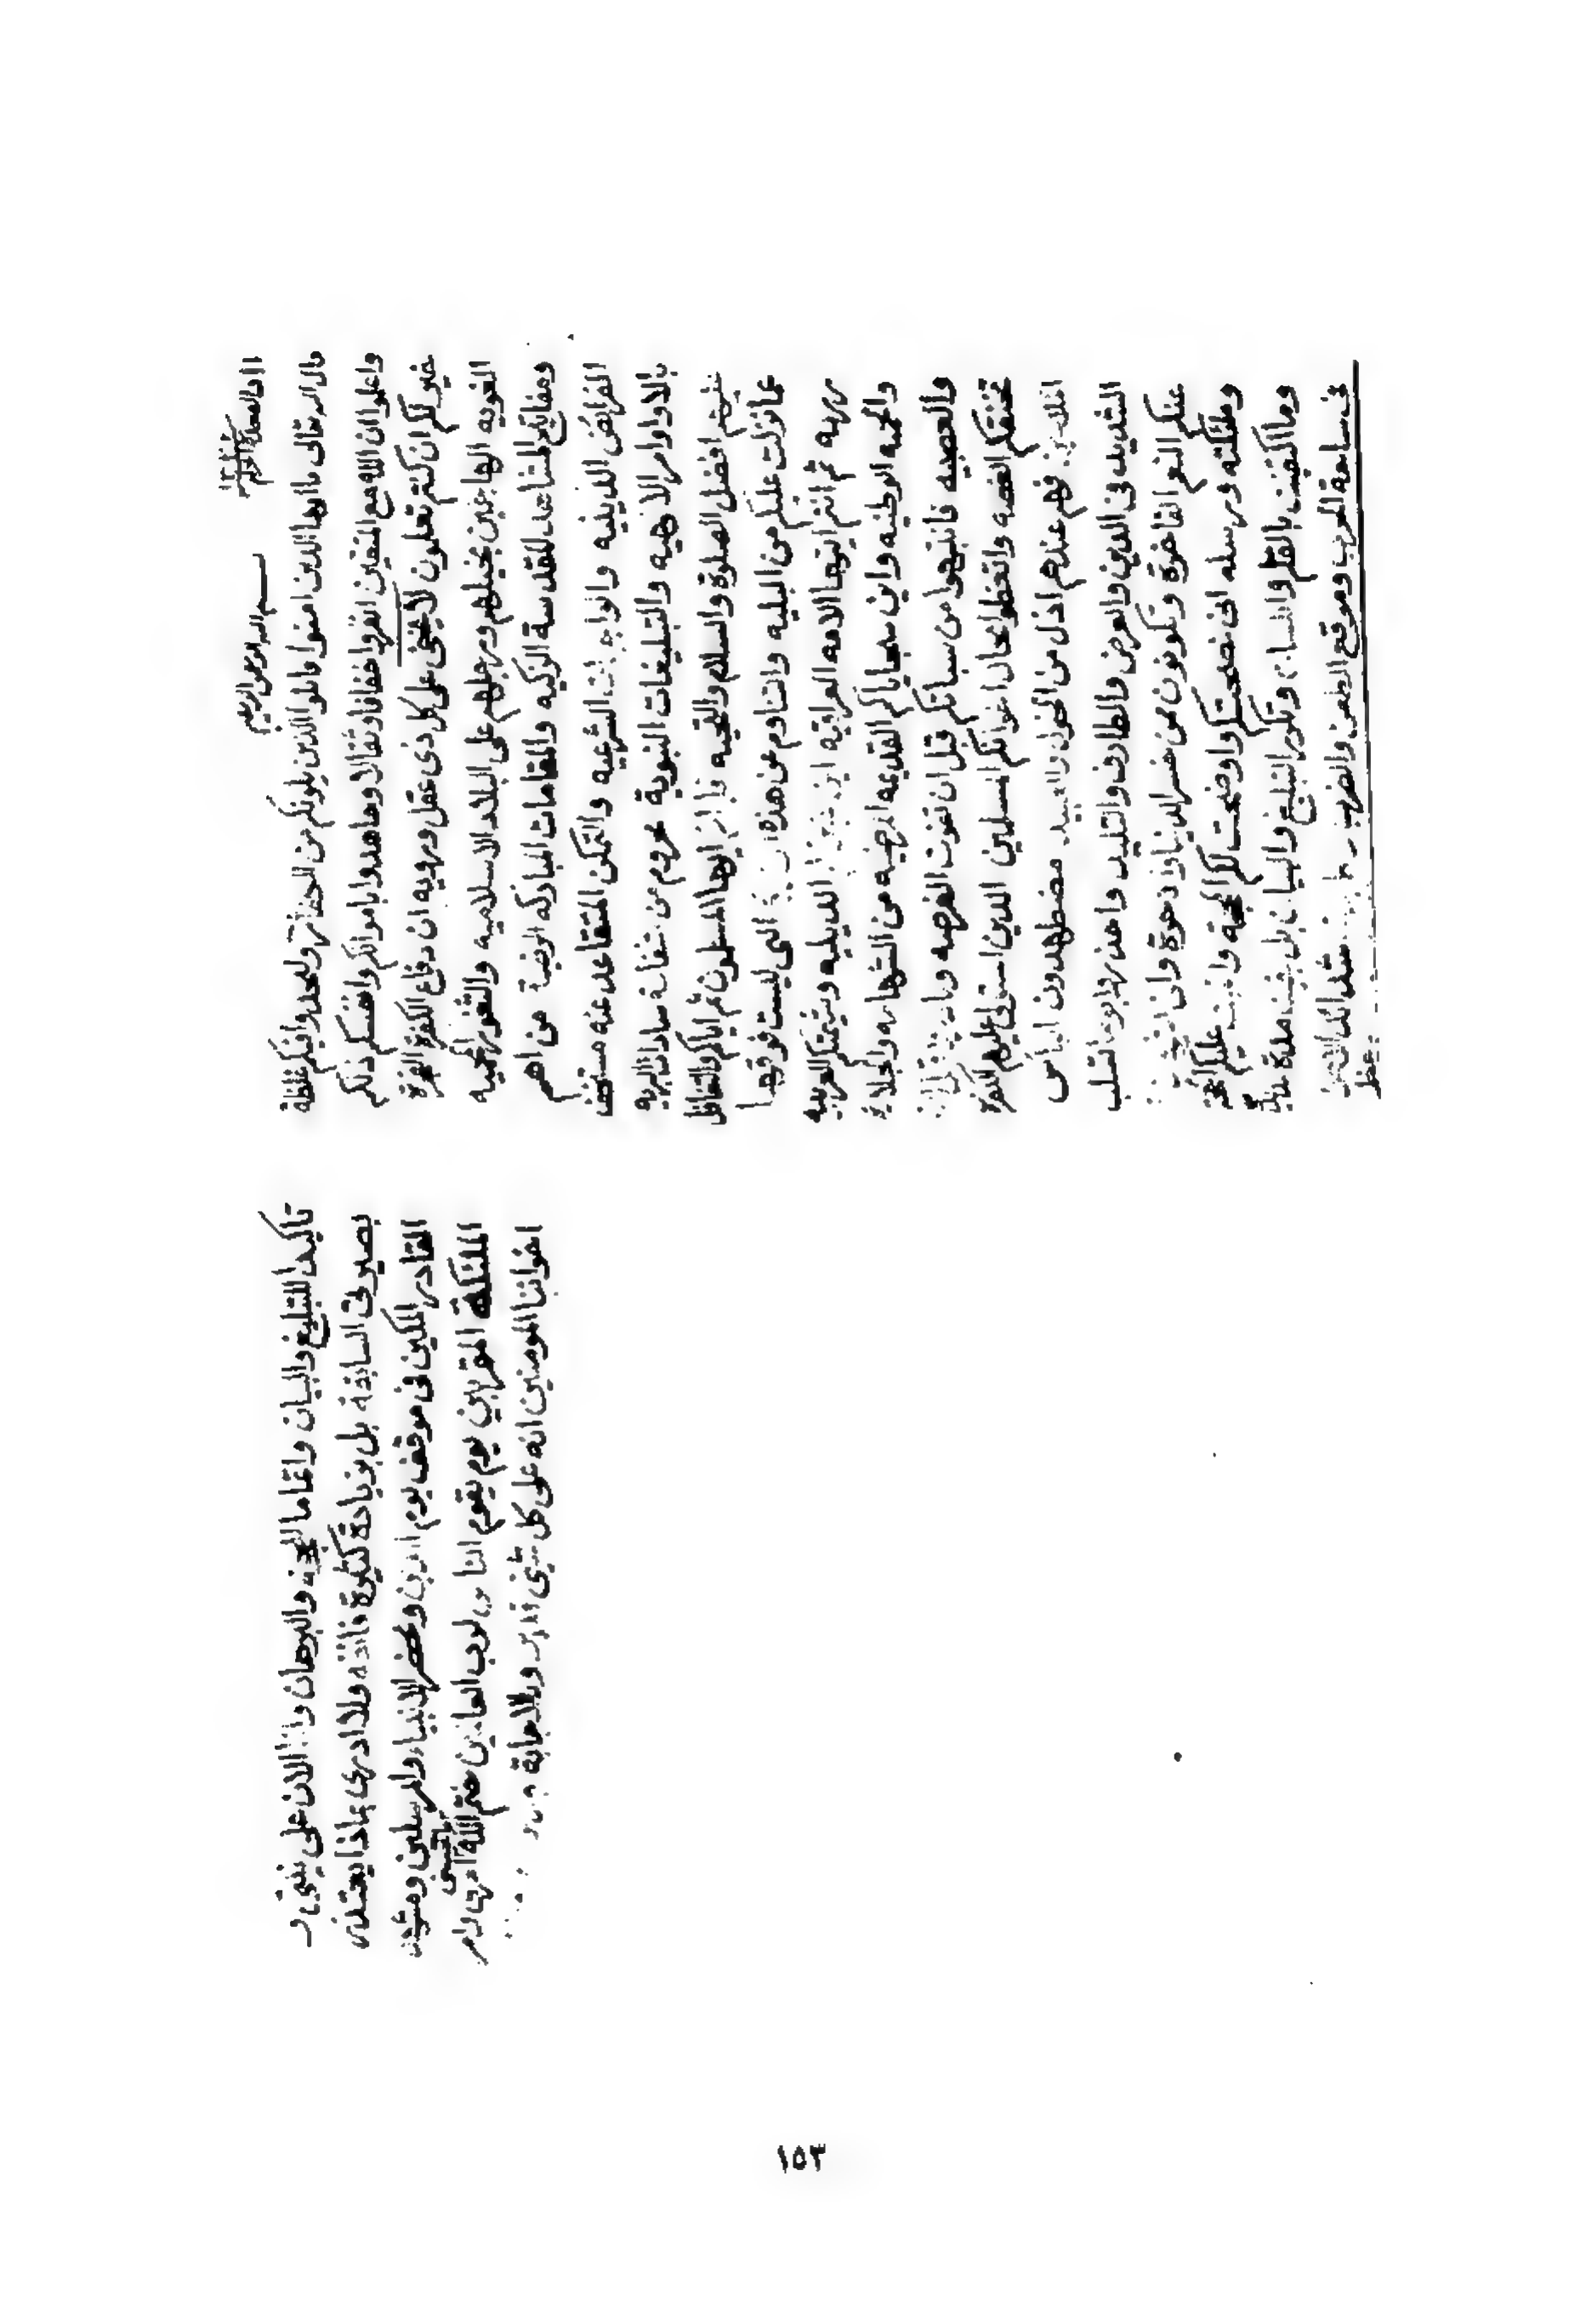 ١١ ذي القعدة الحرام
بسم الله الرحمن الرحيم
قال الله تعالى يا ايها الذين امنوا قاتلوا الذين يلونكم من الكفار وليجدوا فيكم غلظة
واعلموا ان الله مع المتقين انفروا خفافا وثقالا وجاهدوا باموالكم وانفسكم ذلكم
خير لكم ان كنتم تعلمون لا يخفى على كل ذي عقل ورويه ان دفاع الكفرة الفجرة
الغويه الهاجمين بخيلهم ورجلهم على البلاد الاسلاميه والثغور المحميه
ومفاتيح المشاهد المقدسة الزكيه والمقامات المباركه الرضية من اهم
الفرائض الدينيه والواجبات الشرعيه والتمكن المتقاعد عنه مستخف
بالاوامر الالهيه والتبليغات النبوية محروم من شفاعة سادات البريه
عليهم افضل الصلوة والسلام والتحيه ايها المسلمون ثم اياكم والتغافل
عما نزلت عليكم من البليه والتناوم عن هذه التي ليست فوقها
رزيه ثم انتم ايتها الامه العراقيه اين الدينيه وشيمتكم العربيه
والحميه الوطنيه واين سجاياكم القديمه المرضيه من الشهامه والجلادة
والعصبيه فانتبهوا من سباتكم قبل ان تفوت الفرصه
تخنقكم الغصه واتعظوا بحال اخوانكم المسلمين الذين استولى عليهم الكفرة
فهم عندهم اذل من الخول والعبيد مضطهدون
الشديد في الدين والعرض والطارف والتليد واحذروا يوما تسلب
عنكم النعم الفاخرة وتكونون ممن خسر الدنيا والاخرة واني اشهد
وملئكته ورسله اني نصحتكم واوضحت لكم المحجة واتممت عليكم الحجة
وما اكتفيت بالقلم واللسان وتكرر التبليغ والبيان بل بقيت مدة مديدة
في ساحة الحرب وموقع الطعن والضرب
تاكيدا للتبليغ والبيان واتماما للحجة والبرهان وانا الان على نيتي و
بصيرتي السابقة بل بزيادة كثيرة فائقه ولا ادري بماذا يعتذر
القادر المكين في موقف يوم الدين ومحضر الانبياء والمرسلين ومشهد
الملئكة المقربين يوم يقوم الناس لرب العالمين ختم الله بالحسنى
اخواننا المومنين انه على كل شئ قدير وبالاجابة جدير
١٥٤